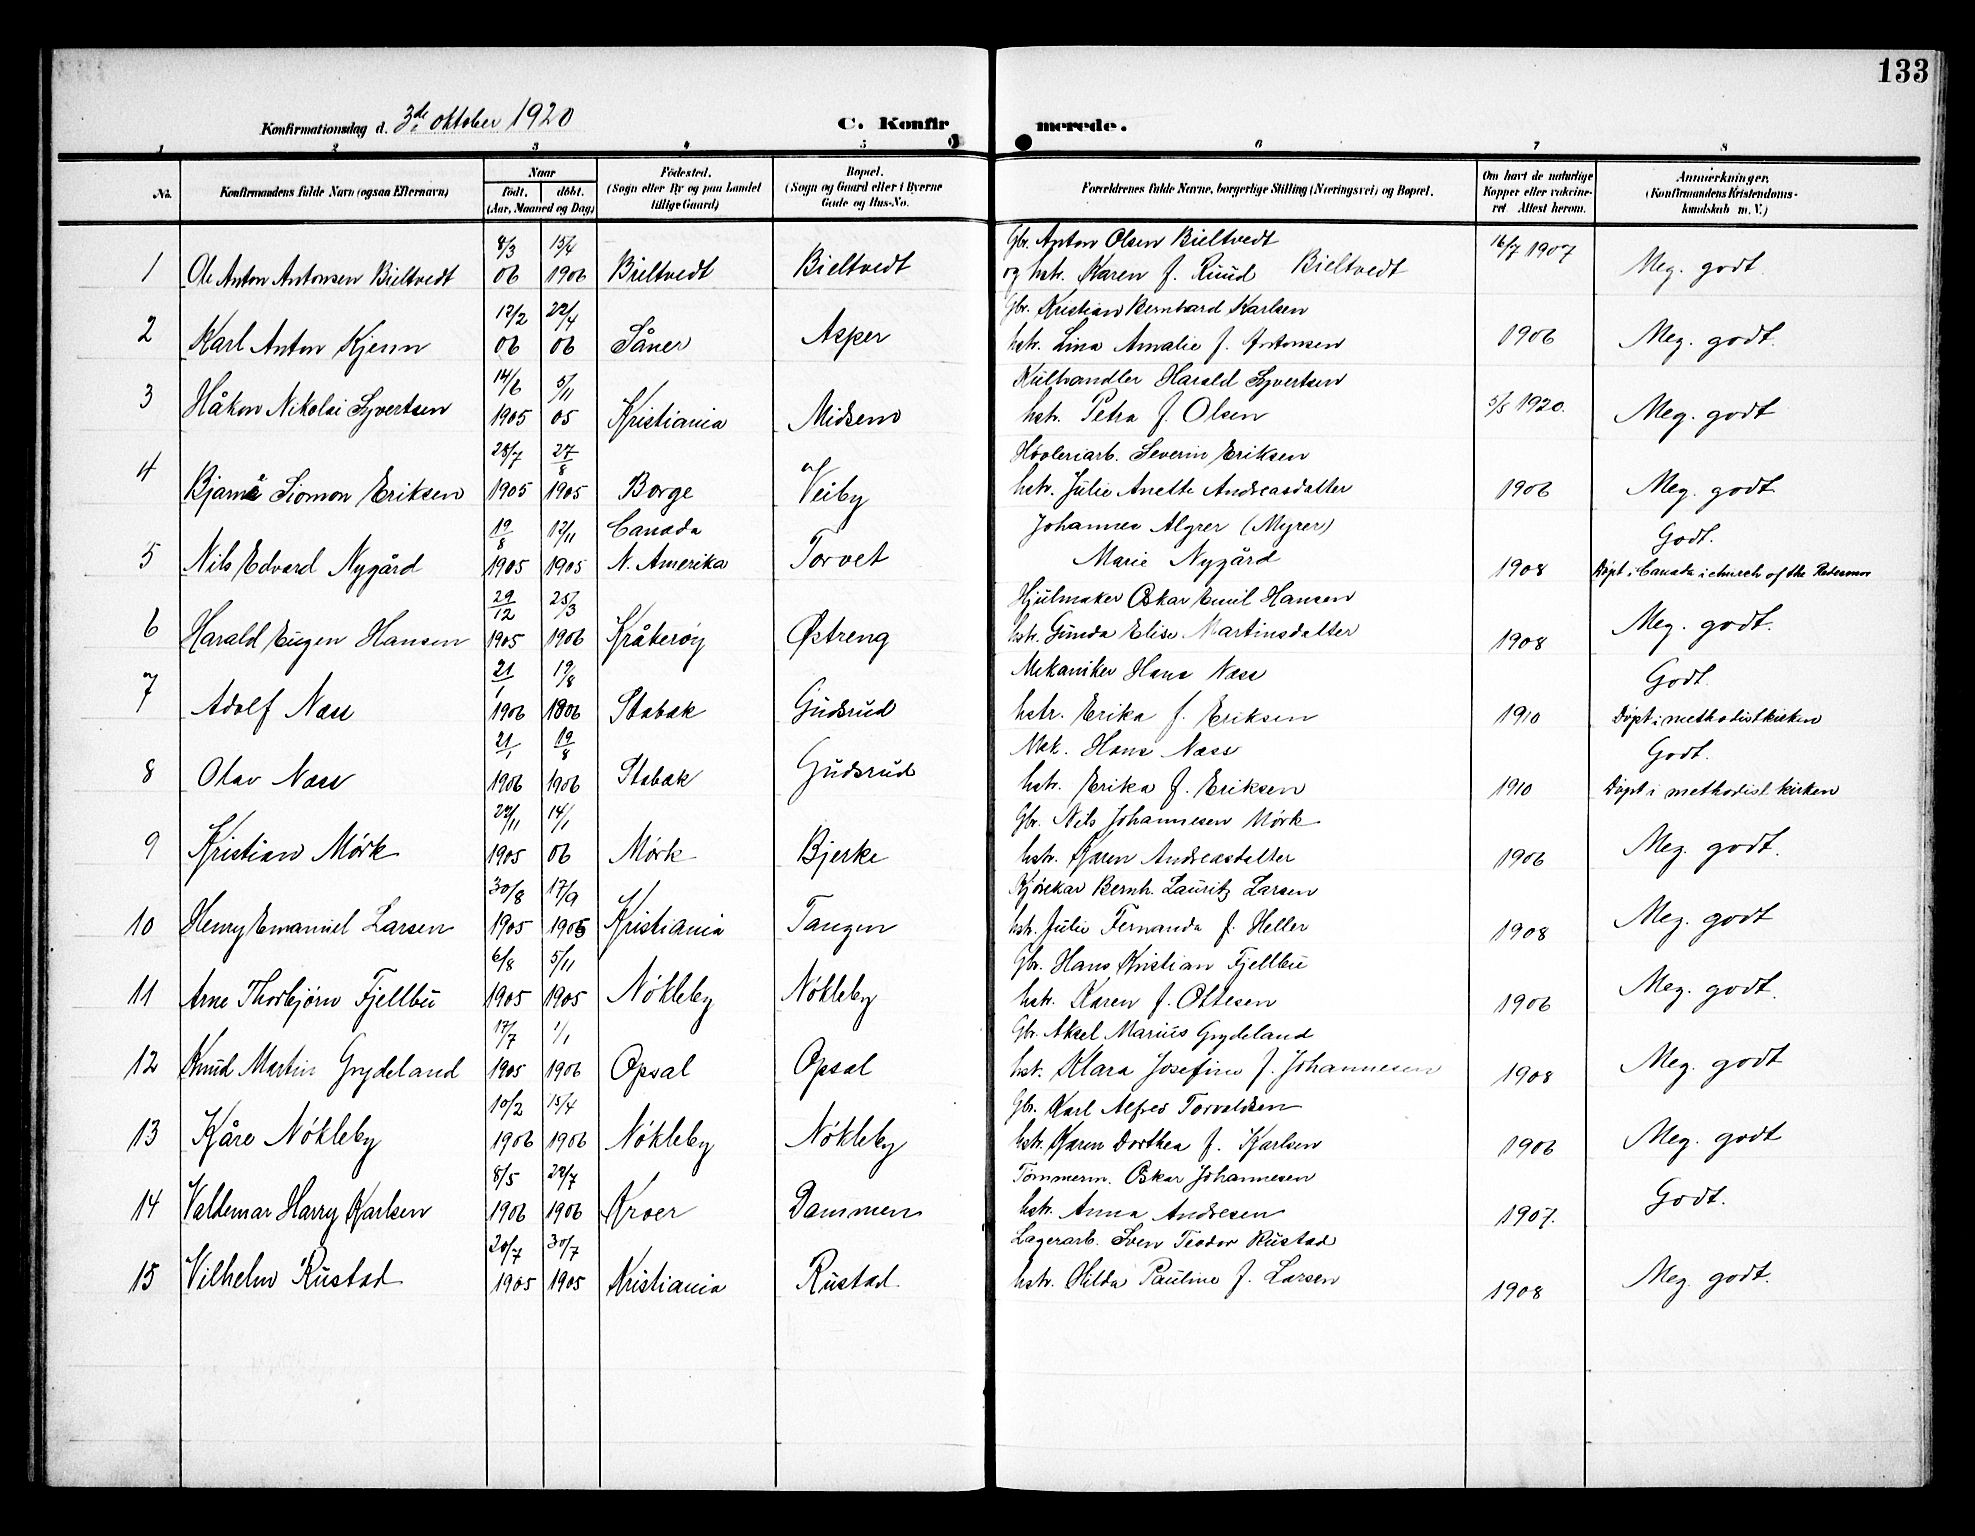 133
Konfirmationsdag d. 3de oktober 1920
C. Konfirmerede.
1 2 3 4 5 6 7 8
No. Konfirmandens fulde Navn (ogsaa Efternavn) Naar födt. döbt. (Aar, Maaned og Dag) Födested. (Sogn eller By og paa Landet tillige Gaard) Bopæl. (Sogn og Gaard eller i Byerne Gade og Hus-No. Forældrenes fulde Navne, borgerlige Stilling (Næringsvei) og Bopæl. Om havt de naturlige Kopper eller vakcineret Attest herom. Anmerkninger. (Konfirmandens Kristendomskundskab m. V.)
8/3 15/4 Gbr. Anton Olsen Bieltvedt 16/7 1907
1 Ole Anton Antonsen Bieltvedt 06 1906 Bieltvedt Bieltvedt og hstr. Karen f. Ruud Bieltvedt Meg. godt.
12/2 22/4 Gbr. Kristian Bernhard Karlsen
2 Karl Anton Kjenn 06 06 Såner Asper hstr. Lina Amalie f. Antonsen 1906 Meg. godt.
14/6 5/11 Kulhandler Harald Syvertsen
3 Håkon Nikolai Syvertsen 1905 05 Kristiania Midsem hstr. Petra f. Olsen 5/5 1920. Meg. godt
28/7 27/8 Høvleriarb. Severin Eriksen
4 Bjarne Siomon Eriksen 1905 1905 Borge Veiby hstr. Julie Anette Andreasdatter 1906 Meg. godt
19/8 12/11 Canada Johannes Algrer (Myrer) Godt.
5 Nils Edvard Nygård 1905 1905 N. Amerika Torvet Marie Nygård 1908 Døpt i Canada i church of the Redeemer
29/12 25/3 Hjulmaker Oskar Emil Hansen
6 Harald Eugen Hansen 1905 1906 Kråkerøy Østreng hstr. Gunda Elise Martinsdatter 1908 Meg. godt.
21/1 19/8 Mekaniker Hans Næss Godt.
7 Adolf Næss 1906 1806 Stabæk Gudsrud hstr. Erika f. Eriksen 1910 Døpt i methodistkirken
21/1 19/8 Mek. Hans Næss Godt.
8 Olav Næss 1906 1906 Stabæk Gudsrud hstr. Erika f. Eriksen 1910 Døpt i methodistkirken
22/11 14/1 Gbr. Nils Johannesen Mørk
9 Kristian Mørk 1905 06 Mørk Bjerke hstr. Karen Andreasdatter 1906 Meg. godt.
30/8 17/9 Kjørekar Bernh. Lauritz Larsen
10 Henry Emanuel Larsen 1905 1905 Kristiania Tangen hstr. Julie Fernanda f. Heller 1908 Meg. godt
6/8 5/11 Gbr. Hans Kristian Fjellbu
11 Arne Thorbjørn Fjellbu 1905 1905 Nökleby Nökleby hstr. Karen f. Ottesen 1906 Meg. godt.
17/7 1/1 Gbr. Aksel Marius Grydeland
12 Knud Martin Grydeland 1905 1906 Opsal Opsal hst. Klara Josefine f. Johannesen 1908 Meg. godt
10/2 15/4 Gbr. Karl Alfred Torvaldsen
13 Kåre Nökleby 1906 1906 Nökleby Nökleby hstr. Karen Dorthea f. Karlsen 1906 Meg. godt
8/5 22/7 Tømmerm. Oskar Johannesen
14 Valdemar Harry Karlsen 1906 1906 Kroer Dammen hstr. Anna Andresen 1907. Godt.
20/7 30/7 Lagerarb. Sven Teodor Rustad
15 Vilhelm Rustad 1905 1905 Kristiania Rustad. hstr. Hilda Pauline f. Larsen 1908 Meg. godt.